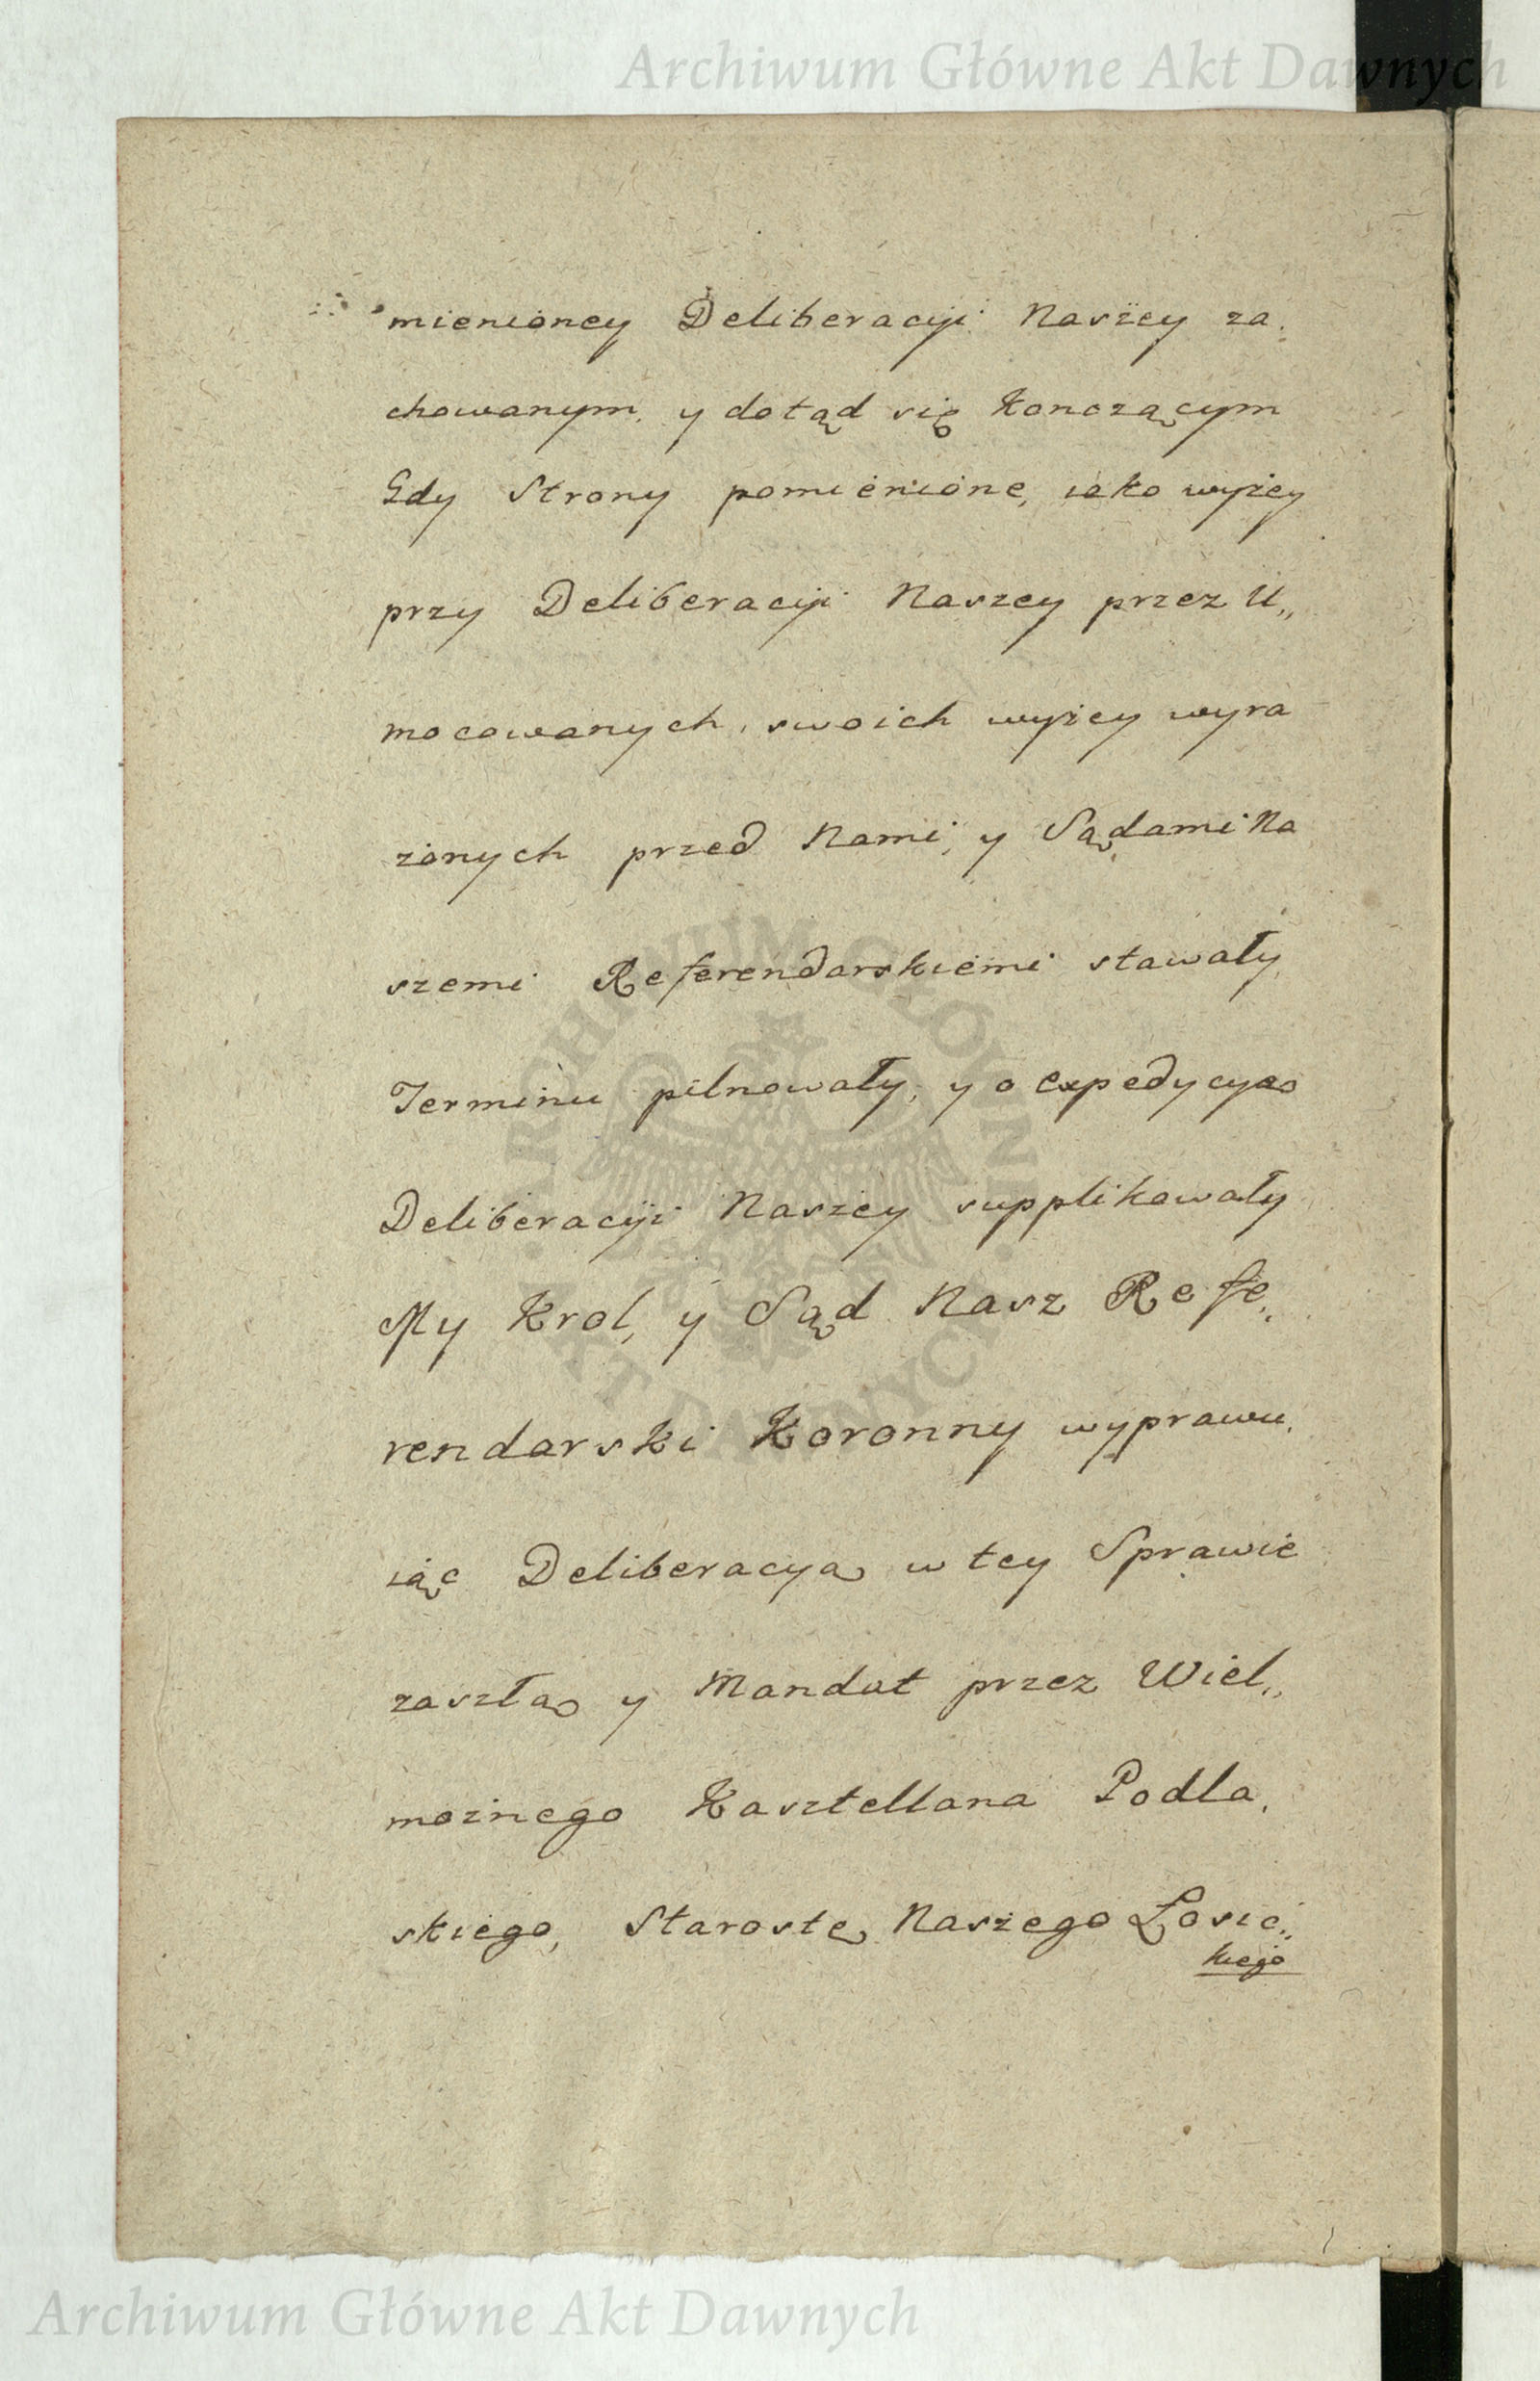 Archiwum Główne Akt Dawnych
mienioney Deliberacyi Naszey za,
chowanym, y dotąd się konczącym
Gdy Strony pomienione, iako wyżey
przy Deliberacyi Naszey przez U,,
mocowanych, swoich wyżey wyra
żonych przed Nami, y Sądami Na
szemi Referendarskiemi stawały,
Terminu pilnowały, y o expedycyą
Deliberacyi Naszey supplikowały
My Krol, y Sąd Nasz Refe,
rendarski Koronny wyprawu,
iąc Deliberacyą w tey Sprawie
zaszłą y Mandat przez Wiel,,
możnego Kasztellana Podla,
skiego, Starostę Naszego Łosic,,
kiego
ARCHIWUM GŁÓWNE
AKT DAWNYCH
Archiwum Główne Akt Dawnych